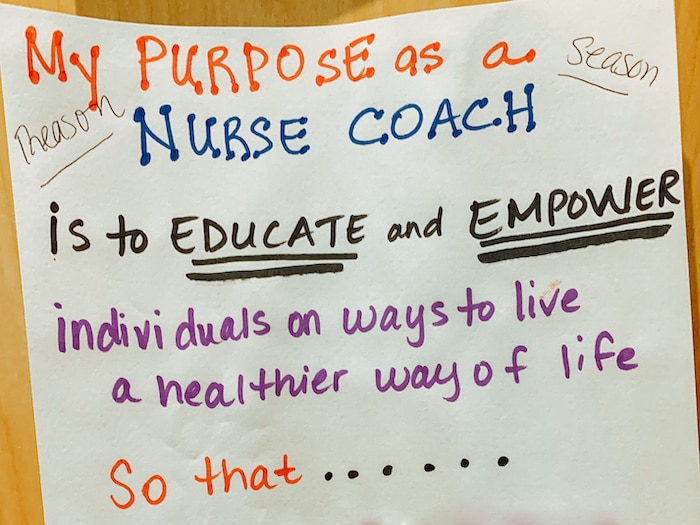 My PURPOSE as a
season
Reason
NURSE COACH
is to EDUCATE and EMPOWER
individuals on ways to live
a healthier way of life
So that ......